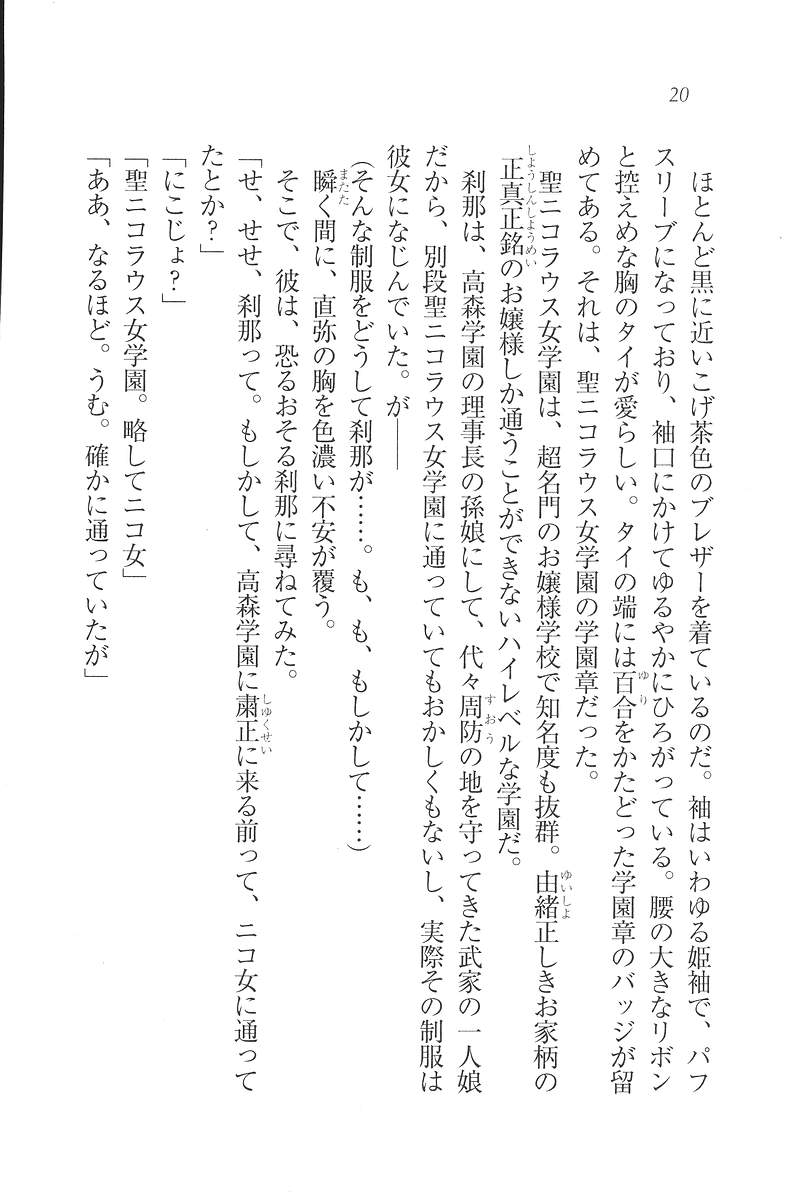 20
ほとんど黒に近いこげ茶色のブレザーを着ているのだ。袖はいわゆる姫袖で、パフ
スリーブになっており、袖口にかけてゆるやかにひろがっている。腰の大きなリボン
と控えめな胸のタイが愛らしい。タイの端には百合をかたどった学園章のバッジが留
めてある。それは、聖ニコラウス女学園の学園章だった。
聖ニコラウス女学園は、超名門のお嬢様学校で知名度も抜群。由緒正しきお家柄の
正真正銘のお嬢様しか通うことができないハイレベルな学園だ。
刹那は、高森学園の理事長の孫娘にして、代々周防の地を守ってきた武家の一人娘
だから、別段聖ニコラウス女学園に通っていてもおかしくもないし、実際その制服は
彼女になじんでいた。が――
(そんな制服をどうして刹那が……。も、も、もしかして……)
瞬く間に、直弥の胸を色濃い不安が覆う。
そこで、彼は、恐るおそる刹那に尋ねてみた。
「せ、せせ、刹那って。もしかして、高森学園に粛正に来る前って、ニコ女に通って
たとか?」
「にこじょ?」
「聖ニコラウス女学園。略してニコ女」
「ああ、なるほど。うむ。確かに通っていたが」